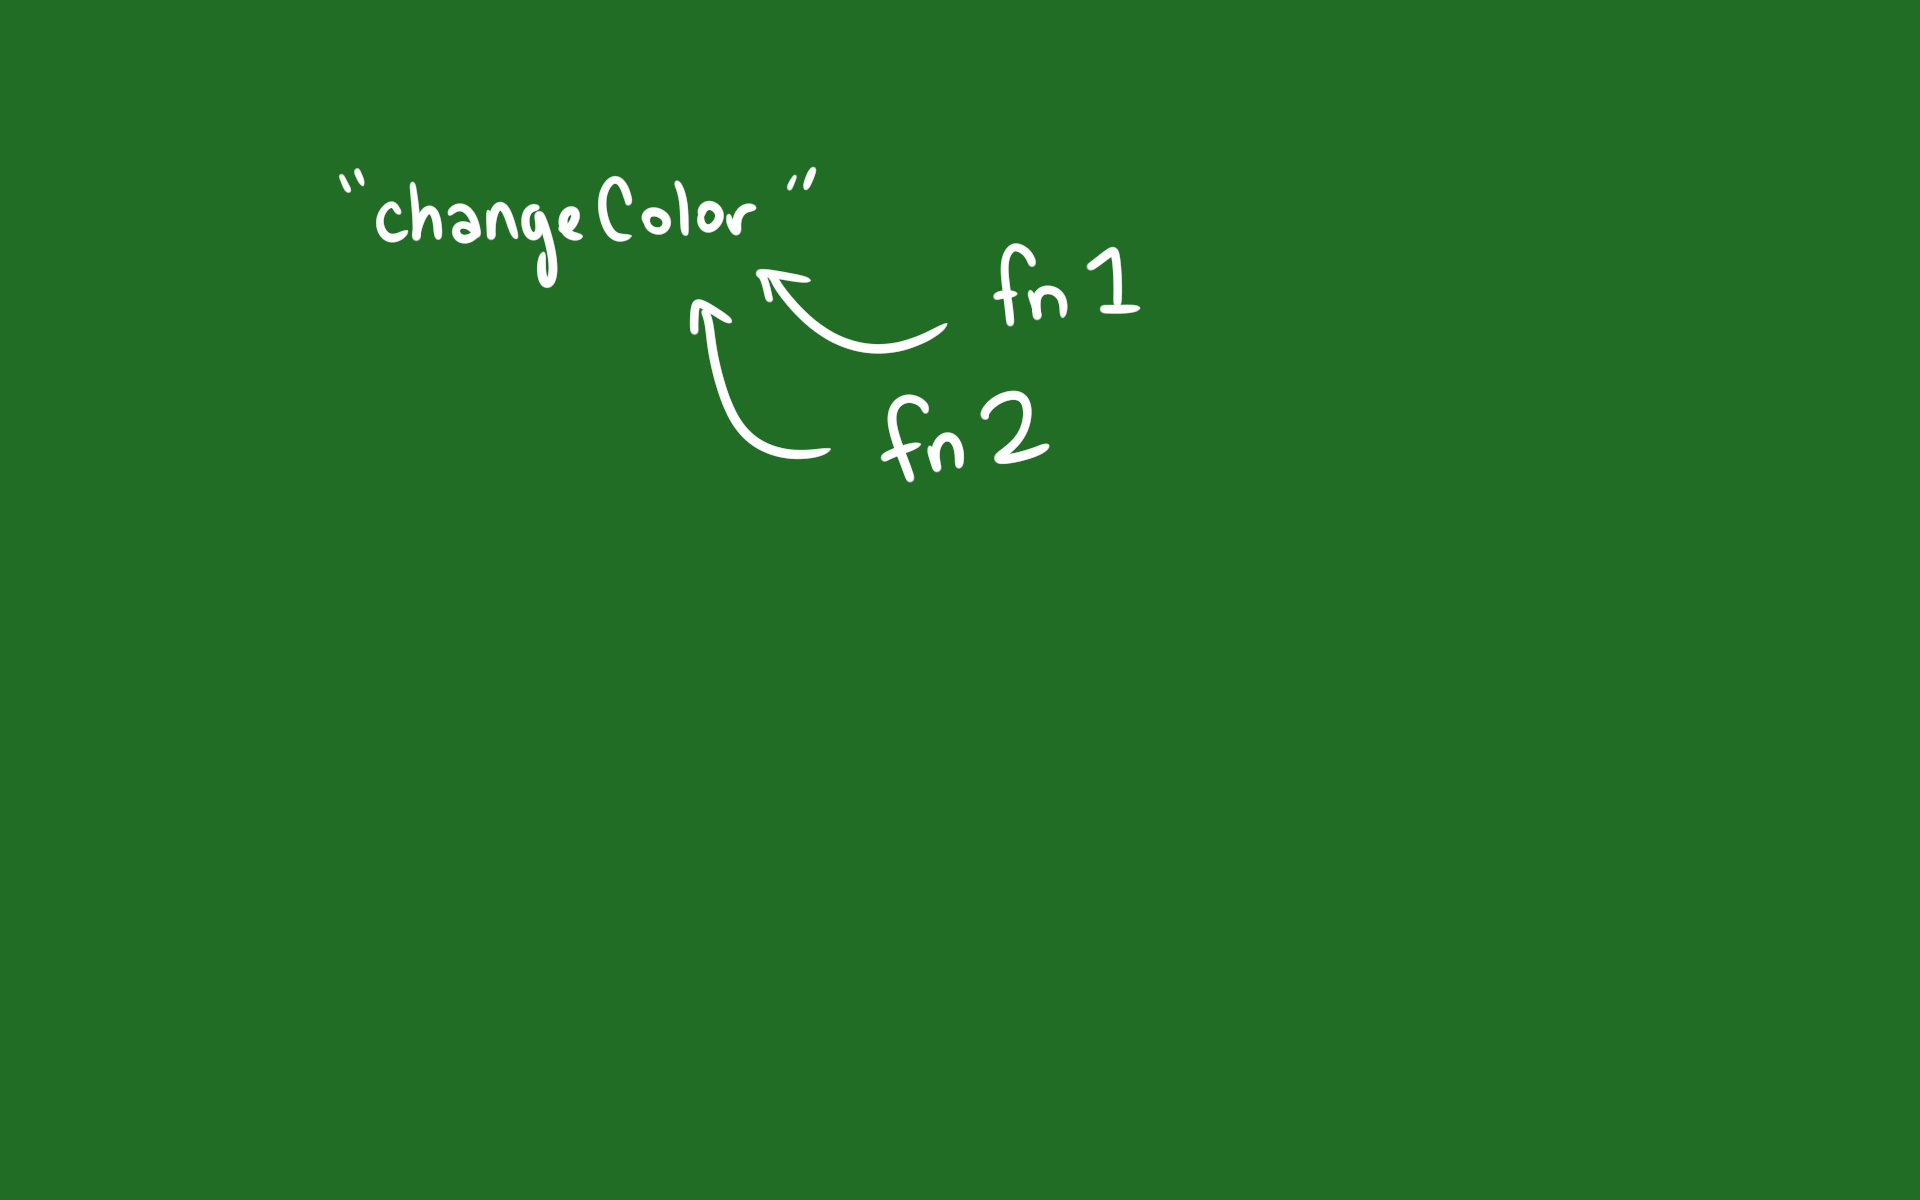 "changeColor"
fn 1
fn 2